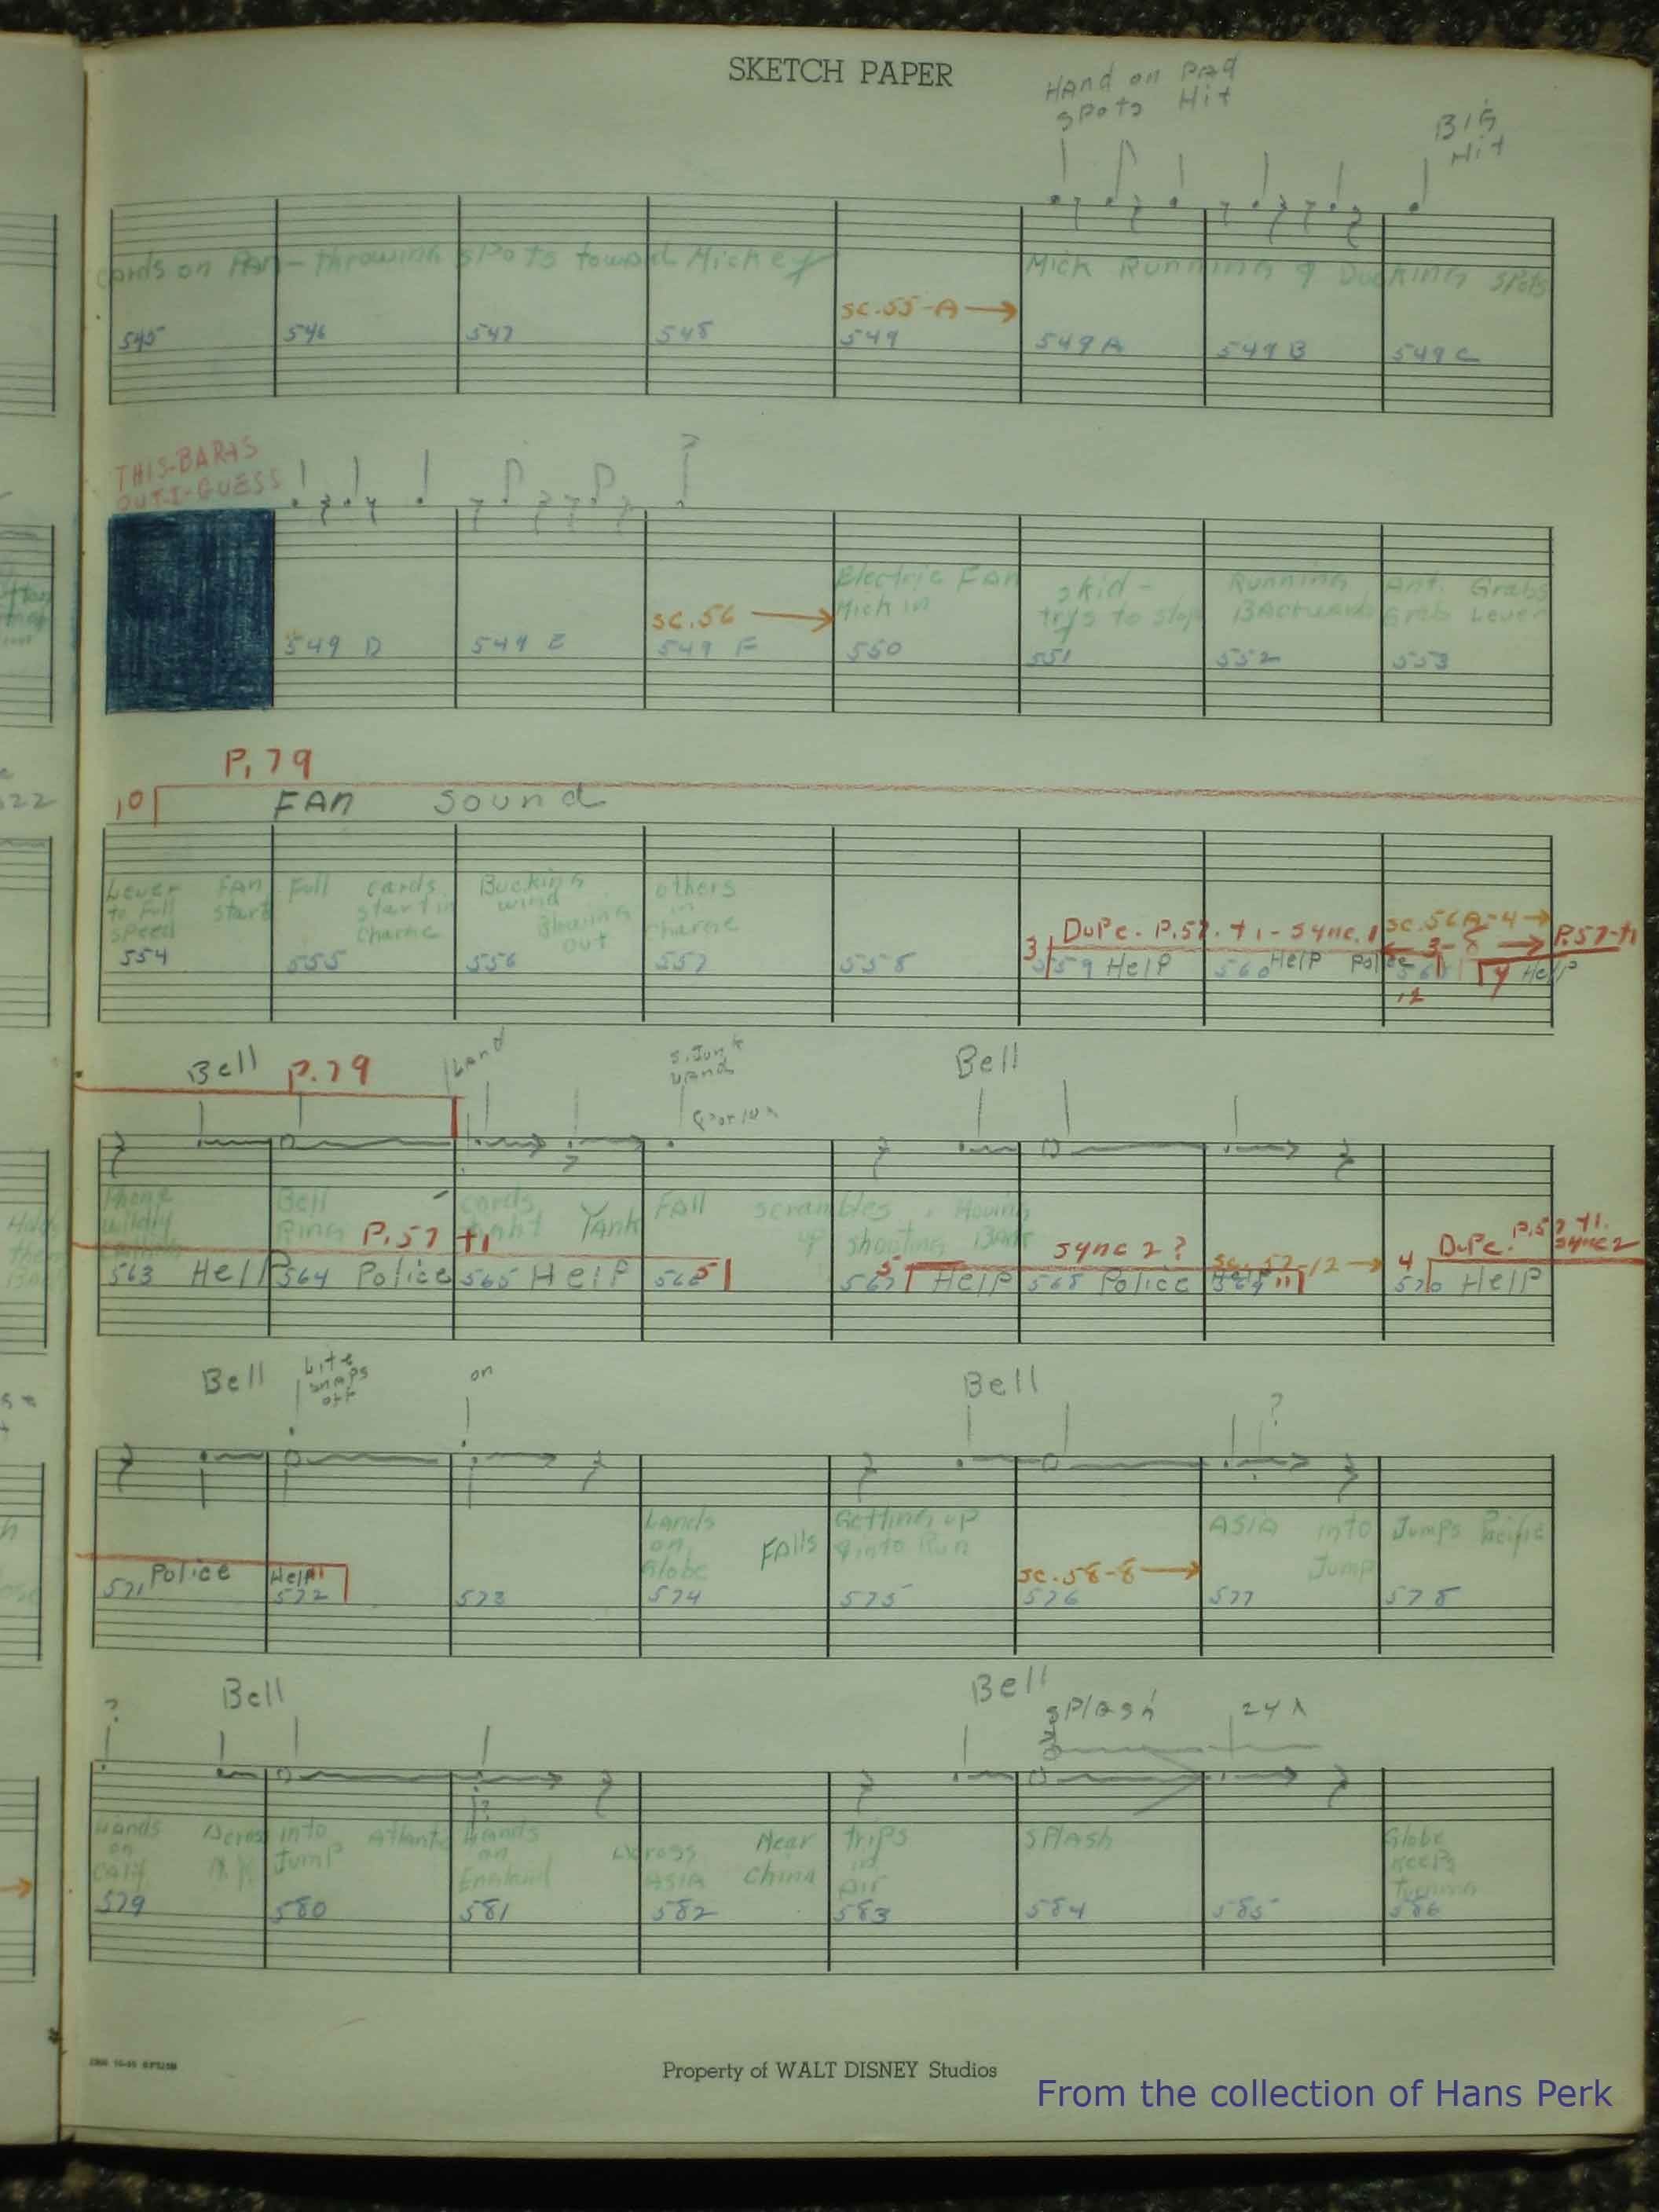 SKETCH PAPER
Hand on Pad
Spots Hit
Big
Hit
Cards on Fan - throwing spots toward Mickey
Mick Running & Ducking Spots
sc.55-A →
545 546 547 548 549 549A 549B 549C
THIS-BAR-IS
OUT-I-GUESS
Electric Fan
Mick in
skid -
trys to stop
Running
Backwards
Ant. Grabs
Grab Lever
sc.56 →
549 D 549 E 549 F 550 551 552 553
P. 79
10
FAN Sound
Lever
to Full
Speed
FAN
start
Full
cards
start in
charne
Bucking
wind
Blowing
out
others
in
charne
3 Dupe. P.57. t1 - Sync. 1
sc.56A-4 →
3-8 →
P.57-t1
554 555 556 557 558 559 Help 560 Help Police 561 Help
12
Bell P.79 Land
Bell
Phone
wildly
Bell
Ring
cards
Yank
Fall
scrambles
up
shooting
P.57 t1
sync 2?
sc.57-12 →
4 Dupe. P.57 t1.
sync 2
563 Help 564 Police 565 Help 566 567 Help 568 Police 569 570 Help
Bell
Lite
snaps
off
on
Bell
?
Lands
on
Globe
Falls
Getting up
& into Run
ASIA into
Jump
Jumps Pacific
sc.58-8 →
571 Police Help 572 573 574 575 576 577 578
? Bell
Bell
Splash
24
Lands
on
Calif.
Across
N.Y.
into
Jump
Atlantic
Lands
on
England
Across
ASIA
Near
China
trips
in
air
Splash
Globe
keeps
turning
579 580 581 582 583 584 585 586
Property of WALT DISNEY Studios
From the collection of Hans Perk